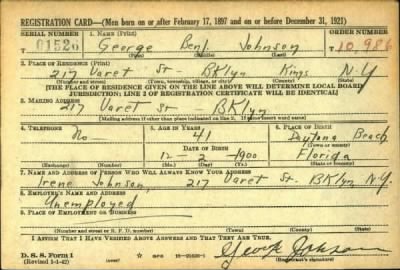 REGISTRATION CARD—(Men born on or after February 17, 1897 and on or before December 31, 1921)
SERIAL NUMBER 1. NAME (Print) ORDER NUMBER
T 01526 George Benj. Johnson T10,986
2. PLACE OF RESIDENCE (Print)
217 Varet St BKlyn Kings N-Y
(Number and street) (Town, township, village, or city) (County) (State)
[THE PLACE OF RESIDENCE GIVEN ON THE LINE ABOVE WILL DETERMINE LOCAL BOARD
JURISDICTION; LINE 2 OF REGISTRATION CERTIFICATE WILL BE IDENTICAL]
3. MAILING ADDRESS
217 Varet St - BKlyn
[Mailing address if other than place indicated on line 2. If same insert word same]
4. TELEPHONE 5. AGE IN YEARS 6. PLACE OF BIRTH
No 41 Daytona Beach
DATE OF BIRTH (Town or county)
12 - 2 - 1900 Florida
(Exchange) (Number) (Mo.) (Day) (Yr.) (State or country)
7. NAME AND ADDRESS OF PERSON WHO WILL ALWAYS KNOW YOUR ADDRESS
Irene Johnson, 217 Varet St. BKlyn, N.Y.
8. EMPLOYER'S NAME AND ADDRESS
Unemployed
9. PLACE OF EMPLOYMENT OR BUSINESS
(Number and street or R. F. D. number) (Town) (County) (State)
I AFFIRM THAT I HAVE VERIFIED ABOVE ANSWERS AND THAT THEY ARE TRUE.
D. S. S. Form 1
(Revised 1-1-42) (over) GPO 16—21630-1 George Johnson
(Registrant's signature)